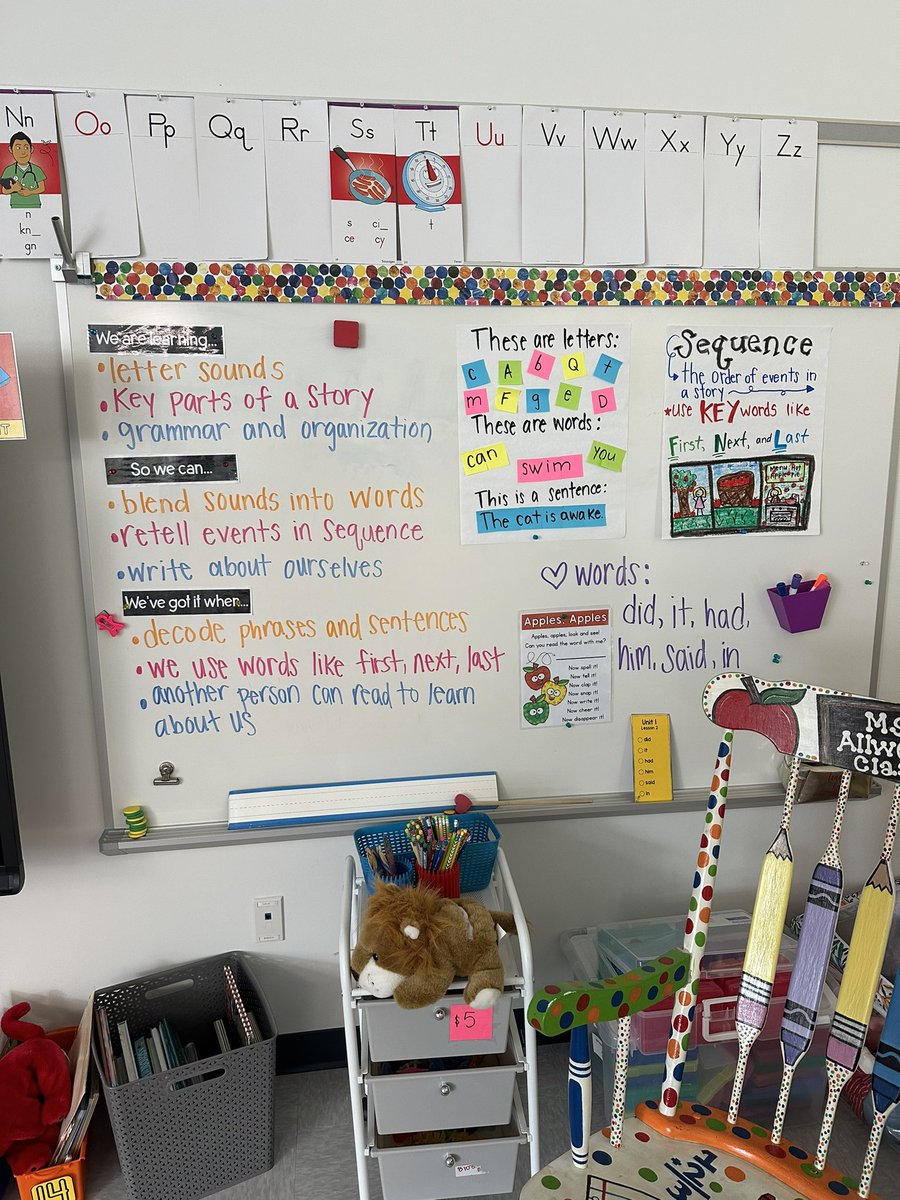 Nn
Oo
Pp
Qq
Rr
Ss
Tt
Uu
Vv
Ww
Xx
Yy
Zz
n
kn_
gn
s ci_
ce cy
t
We are learning...
• letter sounds
• Key parts of a Story
• grammar and organization
So we can...
• blend sounds into words
• retell events in sequence
• write about ourselves
We've got it when...
• decode phrases and sentences
• we use words like first, next, last
• another person can read to learn
about us
These are letters:
c A b Q t
m F g e D
These are words:
can swim you
This is a sentence:
The cat is awake.
Sequence
the order of events in
a story
*use KEY words like
First, Next, and Last
♡ words:
did, it, had,
him, said, in
Apples, Apples
Apples, apples, look and see!
Can you read the word with me?
Now spell it!
Now tell it!
Now clap it!
Now snap it!
Now write it!
Now cheer it!
Now disappear it!
Unit 1
Lesson 2
did
it
had
him
said
in
Ms
Allw
Clas
$5
14